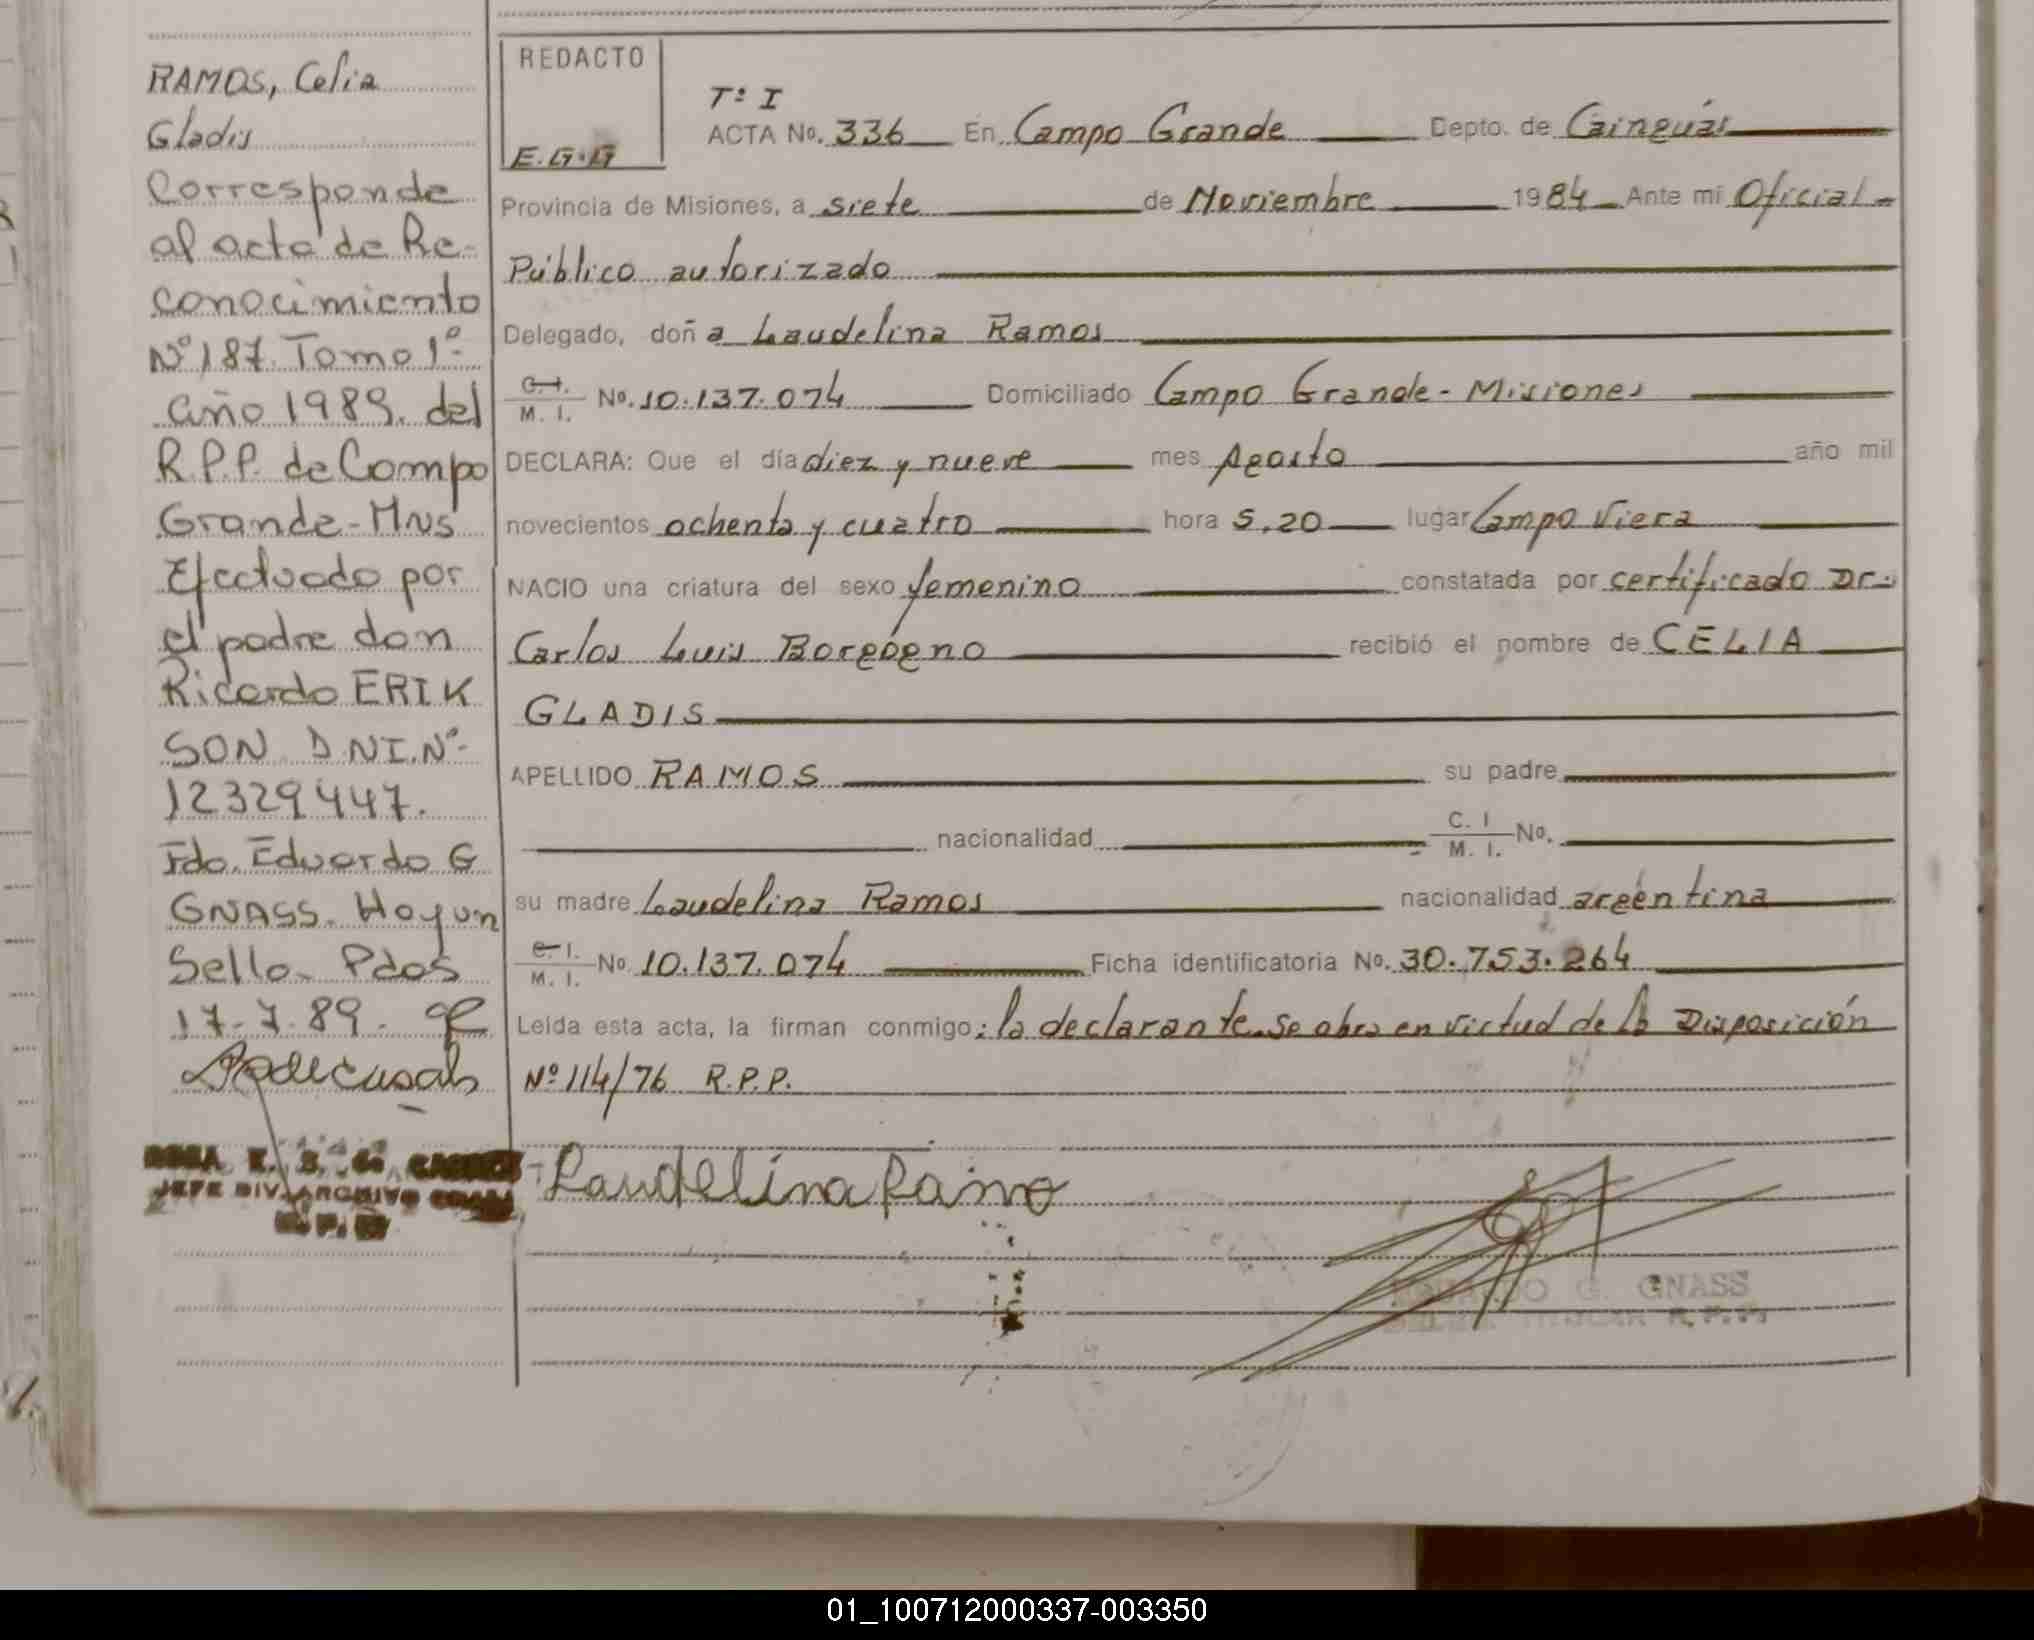 RAMOS, Celia
Gladis
Corresponde
al acta de Re-
conocimiento
Nº 187. Tomo 1º-
año 1989. del
R.P.P. de Campo
Grande-Mns
Efectuado por
el padre don
Ricardo ERIK
SON D.NI.Nº-
12329447.
Fdo. Eduardo G
GNASS. Hay un
Sello- Pdas
17-7-89-
JEFE DIV. ARCHIVO GRAL
R. P. P.
REDACTO
E.G.G
Tº I
ACTA No. 336 En Campo Grande Depto. de Cainguás
Provincia de Misiones, a siete de Noviembre 1984 Ante mi Oficial-
Público autorizado
Delegado, doña Laudelina Ramos
C.I. M. I. No. 10.137.074 Domiciliado Campo Grande-Misiones
DECLARA: Que el día diez y nueve mes Agosto año mil
novecientos ochenta y cuatro hora 5.20 lugar Campo Viera
NACIO una criatura del sexo femenino constatada por certificado Dr.
Carlos Luis Borgogno recibió el nombre de CELIA
GLADIS
APELLIDO RAMOS su padre
nacionalidad C. I M. I. No.
su madre Laudelina Ramos nacionalidad argentina
C.I. M. I. No 10.137.074 Ficha identificatoria No. 30.753.264
Leida esta acta, la firman conmigo: la declarante. Se obra en victud de la Disposición
Nº 114/76 R.P.P.
Laudelina Ramo
G. GNASS
R.P.P.
01_100712000337-003350